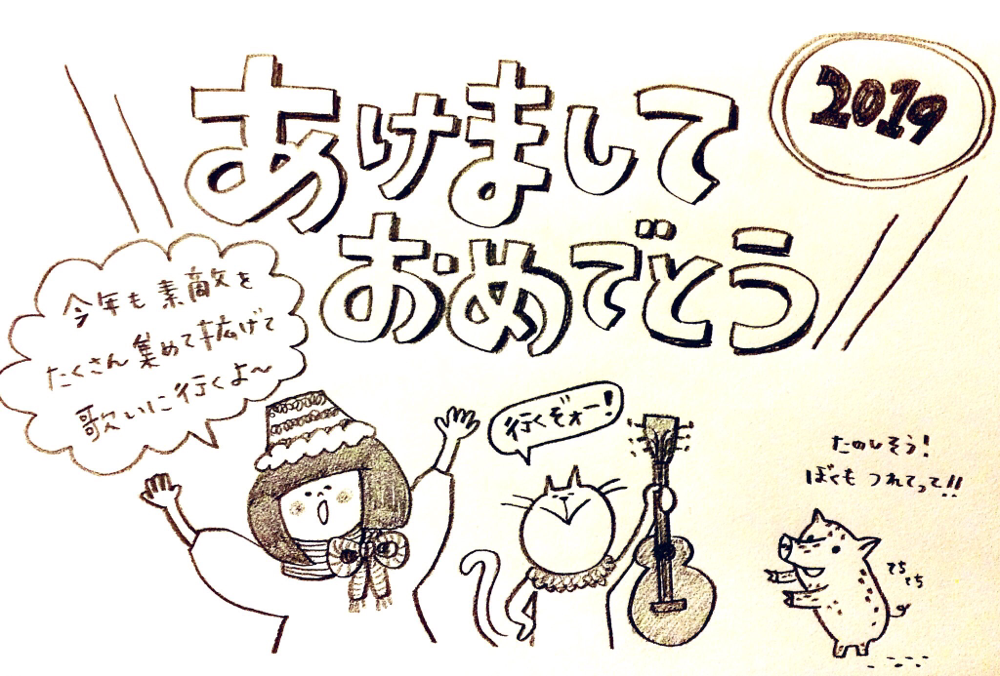 あけまして
おめでとう
2019
今年も素敵を
たくさん集めて拡げて
歌いに行くよ〜
行くぞォー!
たのしそう!
ぼくも つれてって!!
てち
てち